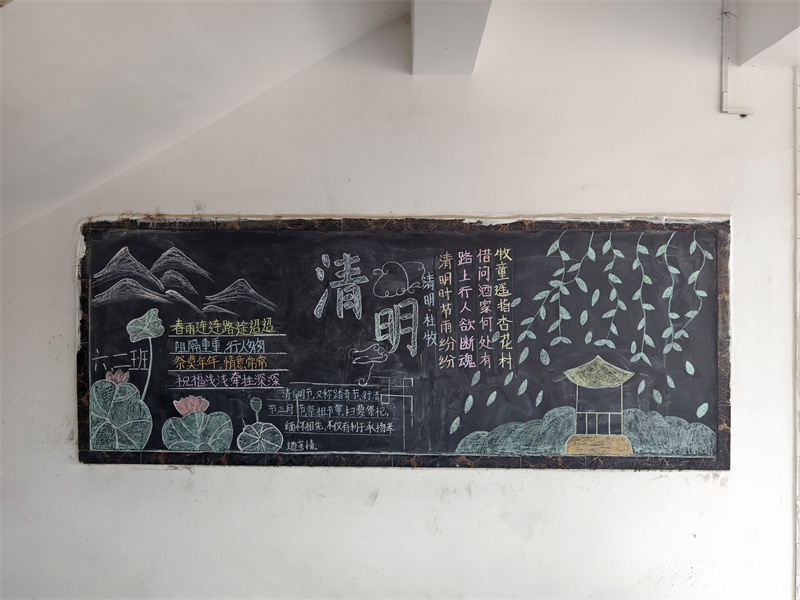 六一班
春雨连连路途迢迢
阻隔重重 行人匆匆
祭奠年年 情意常常
祝福浅浅 牵挂深深
清明
清明节,又称踏青节,行清
节三月节祭祖节等,扫墓祭祀,
缅怀祖先,不仅有利于承扬孝
道亲情。
清明·杜牧
清明时节雨纷纷
路上行人欲断魂
借问酒家何处有
牧童遥指杏花村